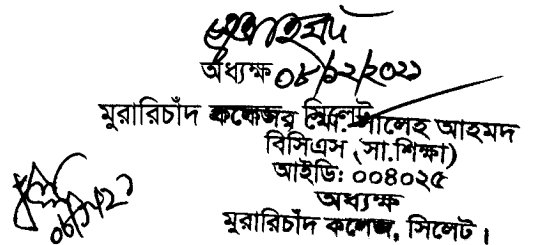 অধ্যক্ষ ০৮/১২/২০২১
মুরারিচাঁদ কলেজ, সিলেট
সালেহ আহমদ
বিসিএস (সা.শিক্ষা)
আইডি: ০০৪০২৫
অধ্যক্ষ
মুরারিচাঁদ কলেজ, সিলেট।